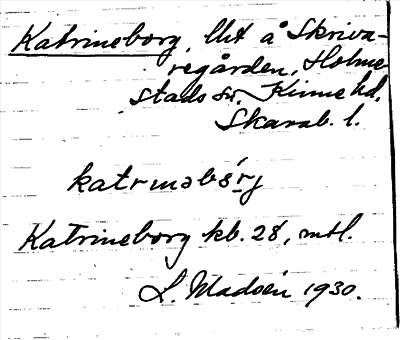 Katrineborg, lht å Skriva-
regården, Holme-
stads sn, Kinne hd,
Skarab. l.
katrinəbǫ́rj
Katrineborg kb. 28, mtl.
L. Madsén 1930.